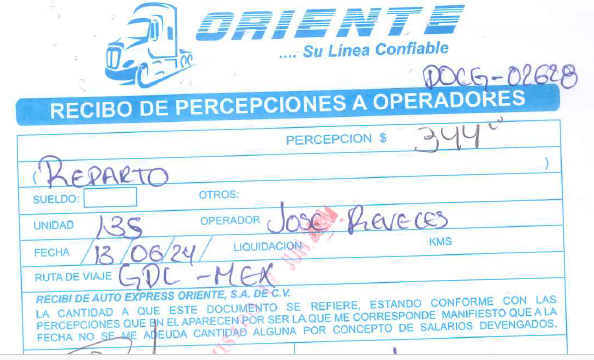 ORIENTE
.... Su Línea Confiable
DOCG-02628
RECIBO DE PERCEPCIONES A OPERADORES
PERCEPCION $ 344
(REPARTO )
SUELDO: OTROS:
UNIDAD 135 OPERADOR JOSE REVELES
FECHA /13/06/24/ LIQUIDACION KMS
RUTA DE VIAJE GDL-MEX
RECIBI DE AUTO EXPRESS ORIENTE, S.A. DE C.V.
LA CANTIDAD A QUE ESTE DOCUMENTO SE REFIERE, ESTANDO CONFORME CON LAS
PERCEPCIONES QUE EN EL APARECEN POR SER LA QUE ME CORRESPONDE MANIFIESTO QUE A LA
FECHA NO SE ME ADEUDA CANTIDAD ALGUNA POR CONCEPTO DE SALARIOS DEVENGADOS.